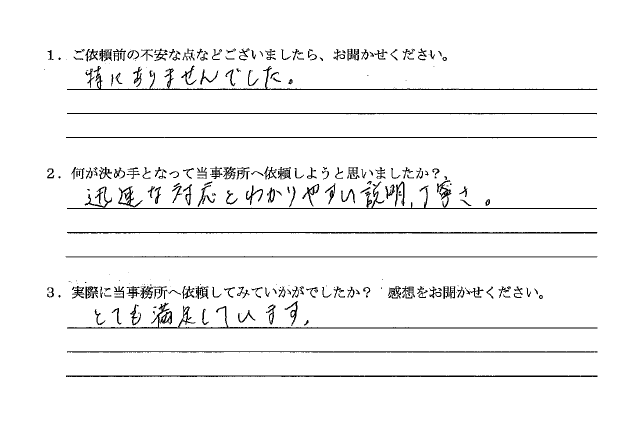 1．ご依頼前の不安な点などございましたら、お聞かせください。
特にありませんでした。
2．何が決め手となって当事務所へ依頼しようと思いましたか？
迅速な対応とわかりやすい説明，丁寧さ。
3．実際に当事務所へ依頼してみていかがでしたか？ 感想をお聞かせください。
とても満足しています。